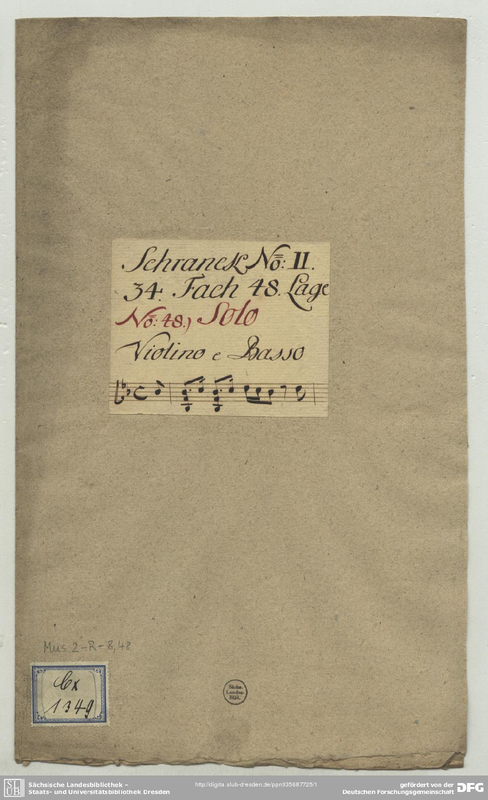 Schranck No: II.
34. Fach 48. Lage
No: 48.) Solo
Violino e Basso
Mus. 2-R-8,48
Cx
1349
Sächs.
Landes-
Bibl.
SLUB
Sächsische Landesbibliothek –
Staats- und Universitätsbibliothek Dresden
http://digital.slub-dresden.de/ppn335687725/1
gefördert von der
Deutschen Forschungsgemeinschaft
DFG